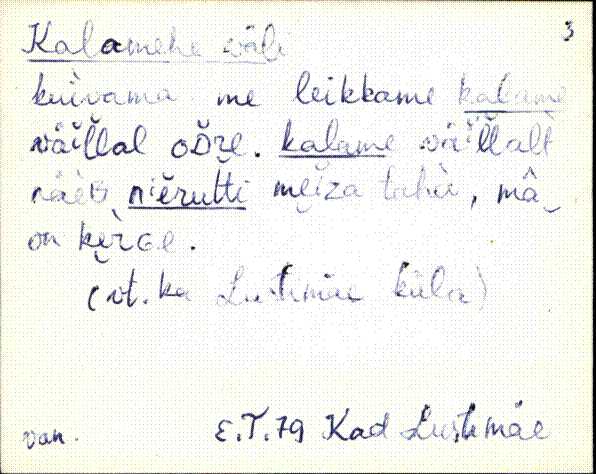 3
Kalamehe väli
kuivama me leikkame kalame
väi̮l̆l̆al oDre. kalame väi̮l̆l̆alt
näeB niĕrutti mei̮za tahà, mâ
on kèrGe.
(vt. ka Lustimäe küla)
van. E.T.79 Kad Lustimäe